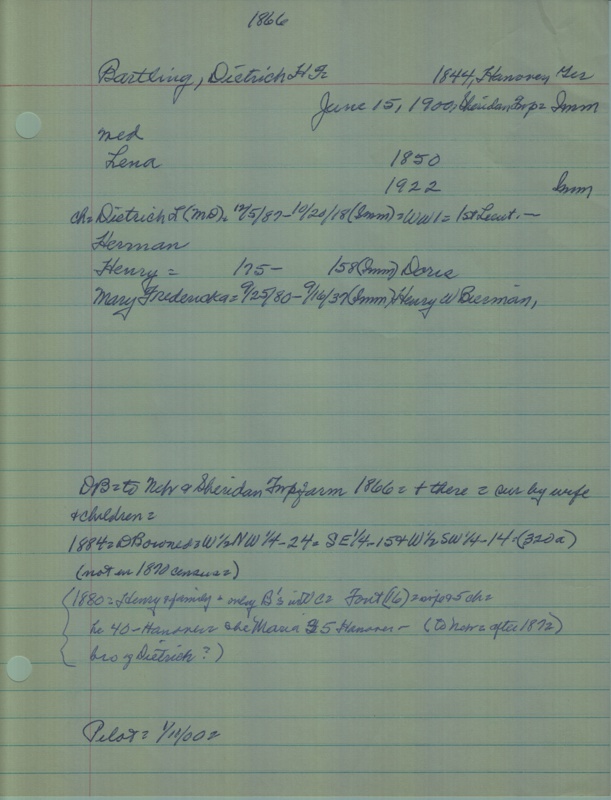 1866
Bartling, Dietrich H F 1844, Hanover, Ger
June 15, 1900, Sheridan Twp = Imm
med
Lena 1850
1922 Imm
ch = Dietrich L (MD) = 12/5/87 - 10/20/18 (Imm) = WW1 = 1st Lieut. -
Herman
Henry = 175 - 158 (Imm) Doris
Mary Fredericka = 9/25/80 - 9/16/37 (Imm) Henry W Bierman,
DB = to Neb & Sheridan Twp farm 1866 = + there = sur by wife
+ children =
1884 = DB owned = W 1/2 NW 1/4 - 24 = SE 1/4 - 15 + W 1/2 SW 1/4 - 14 - (320 a)
(not in 1870 census =)
(1880 = Henry + family = only B's in C = (16) = wife + 5 ch =
he 40 - Hanover = she Maria 35 Hanover - (to Neb = after 1872)
bro of Dietrich?)
Pilot = 1/11/00 =